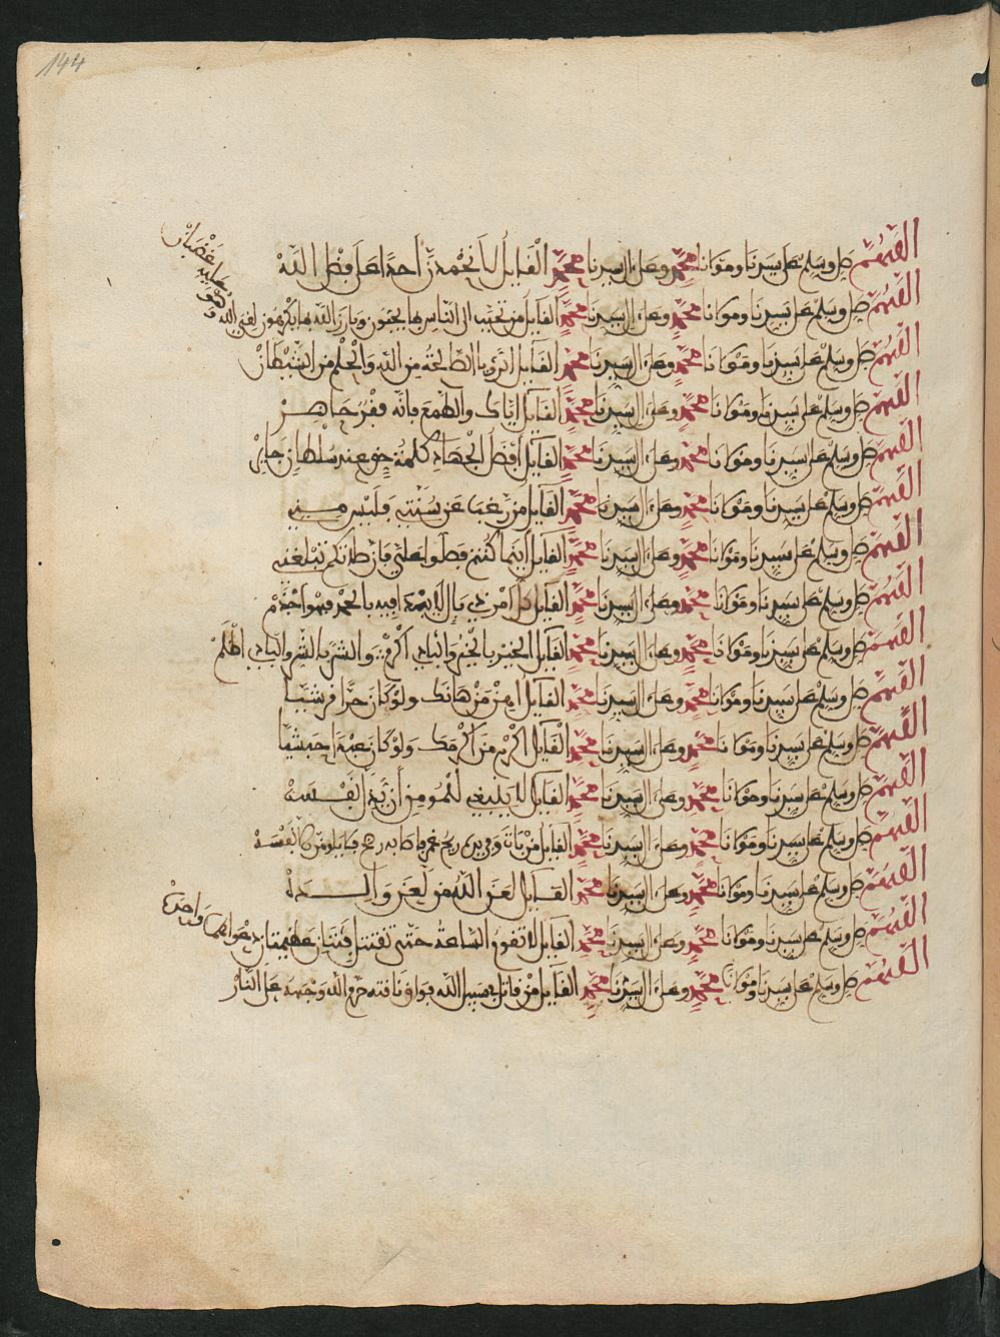 144
اللهم صل وسلم على سيدنا ومولانا محمد وعلى ال سيدنا محمد القايل لا تحمدن احدا على فضل الله
اللهم صل وسلم على سيدنا ومولانا محمد وعلى ال سيدنا محمد القايل من تحبب الى الناس بما يحبون وبارز الله بما يكرهون لقي الله وهو عليه غضبان
اللهم صل وسلم على سيدنا ومولانا محمد وعلى ال سيدنا محمد القايل الرءيا الصالحة من الله والحلم من الشيطان
اللهم صل وسلم على سيدنا ومولانا محمد وعلى ال سيدنا محمد القايل اياك والطمع فانه فقر حاضر
اللهم صل وسلم على سيدنا ومولانا محمد وعلى ال سيدنا محمد القايل افضل الجهاد كلمة حق عند سلطان جاير
اللهم صل وسلم على سيدنا ومولانا محمد وعلى ال سيدنا محمد القايل من رغب عن سنتي فليس مني
اللهم صل وسلم على سيدنا ومولانا محمد وعلى ال سيدنا محمد القايل اينما كنتم فصلوا علي فان صلاتكم تبلغني
اللهم صل وسلم على سيدنا ومولانا محمد وعلى ال سيدنا محمد القايل كل امر ذي بال لا يبدا فيه بالحمد فهو اجذم
اللهم صل وسلم على سيدنا ومولانا محمد وعلى ال سيدنا محمد القايل الخير بالخير والبادي اكرم والشر بالشر والبادي اظلم
اللهم صل وسلم على سيدنا ومولانا محمد وعلى ال سيدنا محمد القايل اهن من هانك ولو كان حرا قرشيا
اللهم صل وسلم على سيدنا ومولانا محمد وعلى ال سيدنا محمد القايل اكرم من اكرمك ولو كان عبدا حبشيا
اللهم صل وسلم على سيدنا ومولانا محمد وعلى ال سيدنا محمد القايل لا ينبغي للمومن أن يذل نفسه
اللهم صل وسلم على سيدنا ومولانا محمد وعلى ال سيدنا محمد القايل من بات وفي يده ريح غمر فاصابه فلا يلومن الا نفسه
اللهم صل وسلم على سيدنا ومولانا محمد وعلى ال سيدنا محمد القايل لعن الله من لعن والده
اللهم صل وسلم على سيدنا ومولانا محمد وعلى ال سيدنا محمد القايل لا تقوم الساعة حتى تقتتل فئتان عظيمتان دعواهما واحدة
اللهم صل وسلم على سيدنا ومولانا محمد وعلى ال سيدنا محمد القايل من قاتل في سبيل الله فواق ناقته حرم الله وجهه على النار